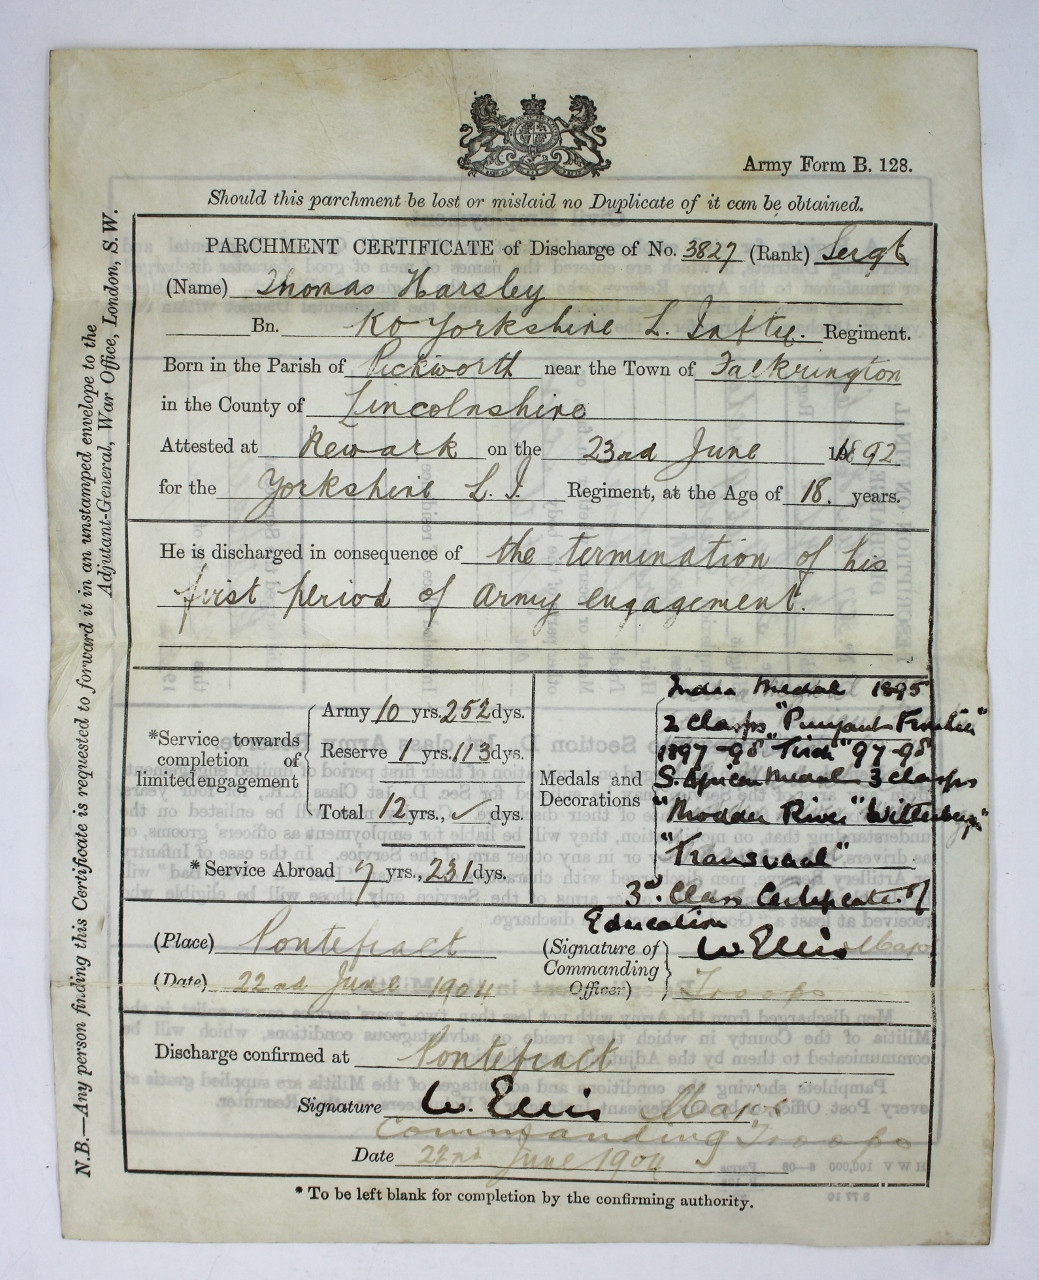 Army Form B. 128.
Should this parchment be lost or mislaid no Duplicate of it can be obtained.
PARCHMENT CERTIFICATE of Discharge of No. 3827 (Rank) Sergt
(Name) Thomas Harsley
Bn. KO Yorkshire L. Inftry. Regiment.
Born in the Parish of Pickworth near the Town of Falkrington
in the County of Lincolnshire
Attested at Newark on the 23rd June 1892
for the Yorkshire L. I. Regiment, at the Age of 18. years.
He is discharged in consequence of the termination of his
first period of Army engagement.
*Service towards completion of limited engagement
Army 10 yrs. 252 dys.
Reserve 1 yrs. 113 dys.
Total 12 yrs., ✓ dys.
* Service Abroad 7 yrs., 231 dys.
Medals and Decorations
India Medal 1895
2 Clasps "Punjaub Frontier"
1897-98 "Tirah" 97-98
S. African Medal 3 clasps
"Modder River" "Wittebergen"
"Transvaal"
3rd. Class Certificate of
Education
(Place) Pontefract
(Date) 22nd June 1904
(Signature of Commanding Officer) W. Ellis Major
Troops
Discharge confirmed at Pontefract
Signature W. Ellis Major
Commanding Troops
Date 22nd June 1904
* To be left blank for completion by the confirming authority.
N.B.—Any person finding this Certificate is requested to forward it in an unstamped envelope to the
Adjutant-General, War Office, London, S.W.